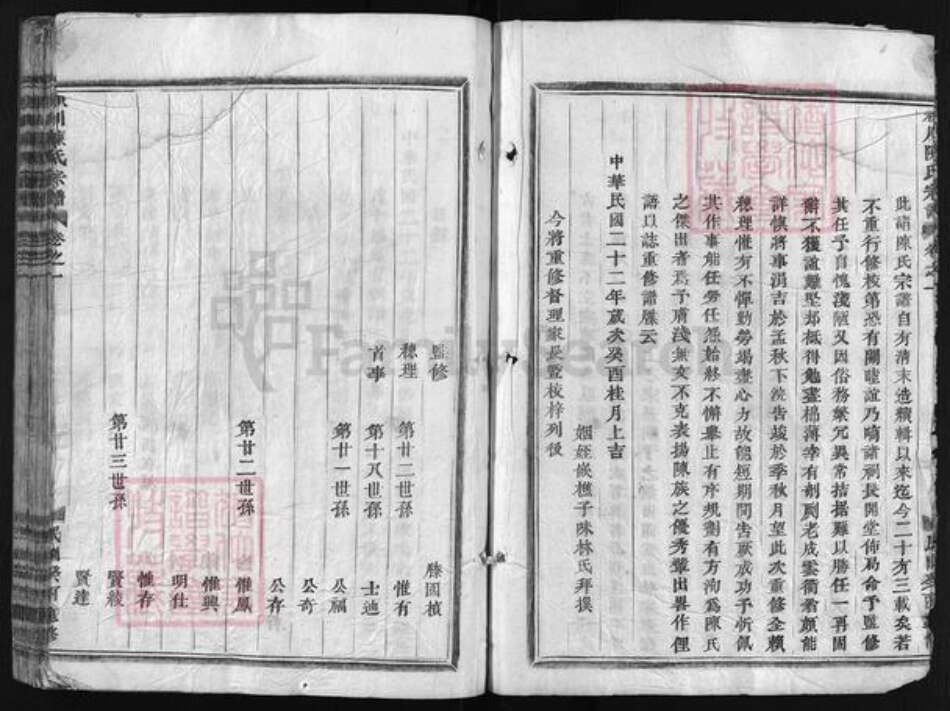 此譜陳氏宗譜自有清末造續輯以來迄今二十方三載矣若
不重行修校第恐有關睦誼乃唷諸祠長開堂佈局命予監修
其任予自愧淺陋又因俗務繁冗異常拮据難以勝任一再固
辭不獲誼難堅却祗得勉盡棉薄幸有剞劂老成雲衢翁頗能
詳慎將事涓吉於孟秋下浣告竣於季秋月望此次重修全賴
總理惟有不憚勤勞竭盡心力故能短期間告厥成功予忻佩
其作事能任勞任怨始終不懈舉止有序規劃有方洵為陳氏
之傑出者焉予膚淺無文不克表揚陳族之優秀輩出畧作俚
語以誌重修譜牒云
姻姪嵌樵子味林氏拜撰
中華民國二十二年歲次癸酉桂月上吉
今將重修督理家長暨校梓列後
監修 縢國楨
總理 第廿二世孫 惟有
首事 第十八世孫 士迪
第廿一世孫 公福
公奇
公存
第廿二世孫 惟鳳
惟興
明仕
惟存
第廿三世孫 賢稜
賢達
氏宗譜 卷之一
FamilySearch